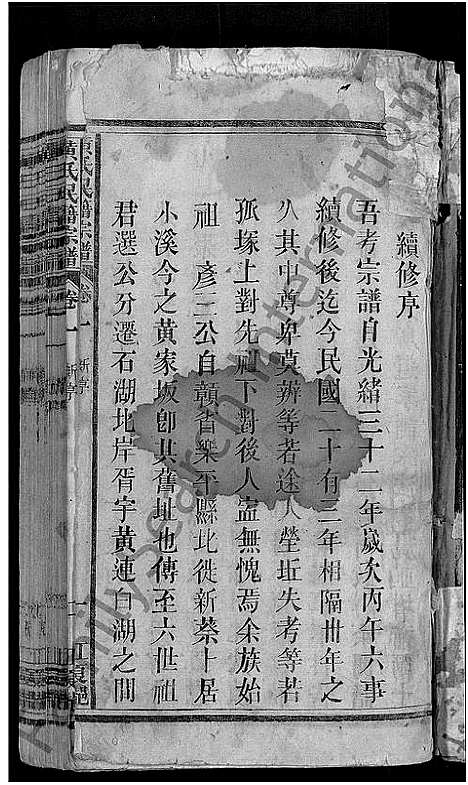 續修序
吾考宗譜自光緒三十二年歲次丙午六事
續修後迄今民國二十有三年相隔卅年之
久其中尊卑莫辨等若途人塋坵失考等若
孤塚上對先祖下對後人盍無愧焉余族始
祖 彥二公自贛省樂平縣北徙新蔡十居
小溪今之黃家坂卽其舊址也傳至六世祖
君選公分遷石湖北岸胥宇黃連白湖之間
黃氏宗譜 卷一 新亭
江夏